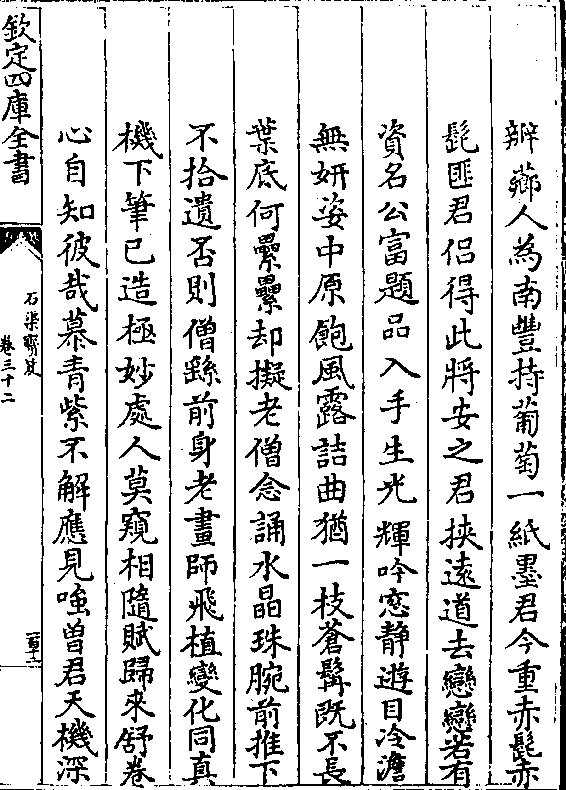 辦薌人為南豐持葡萄一紙墨君今重赤髭赤
髭匪君侣得此將安之君挾逺道去戀戀若有
資名公富題品入手生光輝吟窓静遊目冷澹
無妍姿中原飽風露詰曲猶一枝蒼髯既不長
葉底何纍纍却擬老僧念誦水晶珠腕前推下
不拾遺否則僧繇前身老畫師飛植變化同真
機下筆已造極妙處人莫窺相隨賦歸來舒卷
心自知彼哉慕青紫不解應見嗤曾君天機深
欽定四庫全書
石渠寳笈
卷三十二